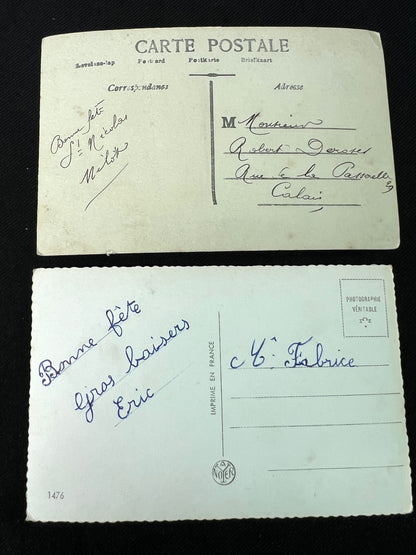 CARTE POSTALE
Levelezö-lap Postcard Postkarte Briefkaart
Correspondance
Adresse
Bonne fête
St Nicolas
M Monsieur
Robert
Rue de la
Calais
Bonne fête
Gros baisers
Eric
IMPRIMÉ EN FRANCE
PHOTOGRAPHIE
VÉRITABLE
Mr. Fabrice
NOYER
1476